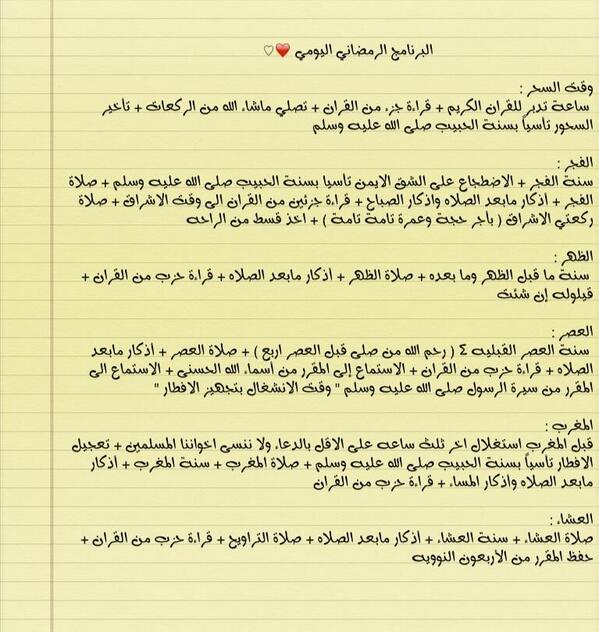 البرنامج الرمضاني اليومي ❤️♡
وقت السحر :
ساعة تدبر للقران الكريم + قراءة جزء من القران + تصلي ماشاء الله من الركعات + تأخير
السحور تأسياً بسنة الحبيب صلى الله عليه وسلم
الفجر :
سنة الفجر + الاضطجاع على الشق الايمن تأسيا بسنة الحبيب صلى الله عليه وسلم + صلاة
الفجر + أذكار مابعد الصلاه واذكار الصباح + قراءة جزئين من القران الى وقت الاشراق + صلاة
ركعتي الاشراق ( بأجر حجة وعمرة تامة تامة ) + اخذ قسط من الراحه
الظهر :
سنة ما قبل الظهر وما بعده + صلاة الظهر + أذكار مابعد الصلاه + قراءة حزب من القران +
قيلوله إن شئت
العصر :
سنة العصر القبليه ٤ ( رحم الله من صلى قبل العصر اربع ) + صلاة العصر + أذكار مابعد
الصلاه + قراءة حزب من القران + الاستماع إلى المقرر من أسماء الله الحسنى + الاستماع الى
المقرر من سيرة الرسول صلى الله عليه وسلم " وقت الانشغال بتجهيز الافطار "
المغرب :
قبل المغرب استغلال اخر ثلث ساعه على الاقل بالدعاء ولا ننسى اخواننا المسلمين + تعجيل
الافطار تأسياً بسنة الحبيب صلى الله عليه وسلم + صلاة المغرب + سنة المغرب + أذكار
مابعد الصلاه وأذكار المساء + قراءة حزب من القران
العشاء :
صلاة العشاء + سنة العشاء + أذكار مابعد الصلاه + صلاة التراويح + قراءة حزب من القران +
حفظ المقرر من الأربعون النوويه